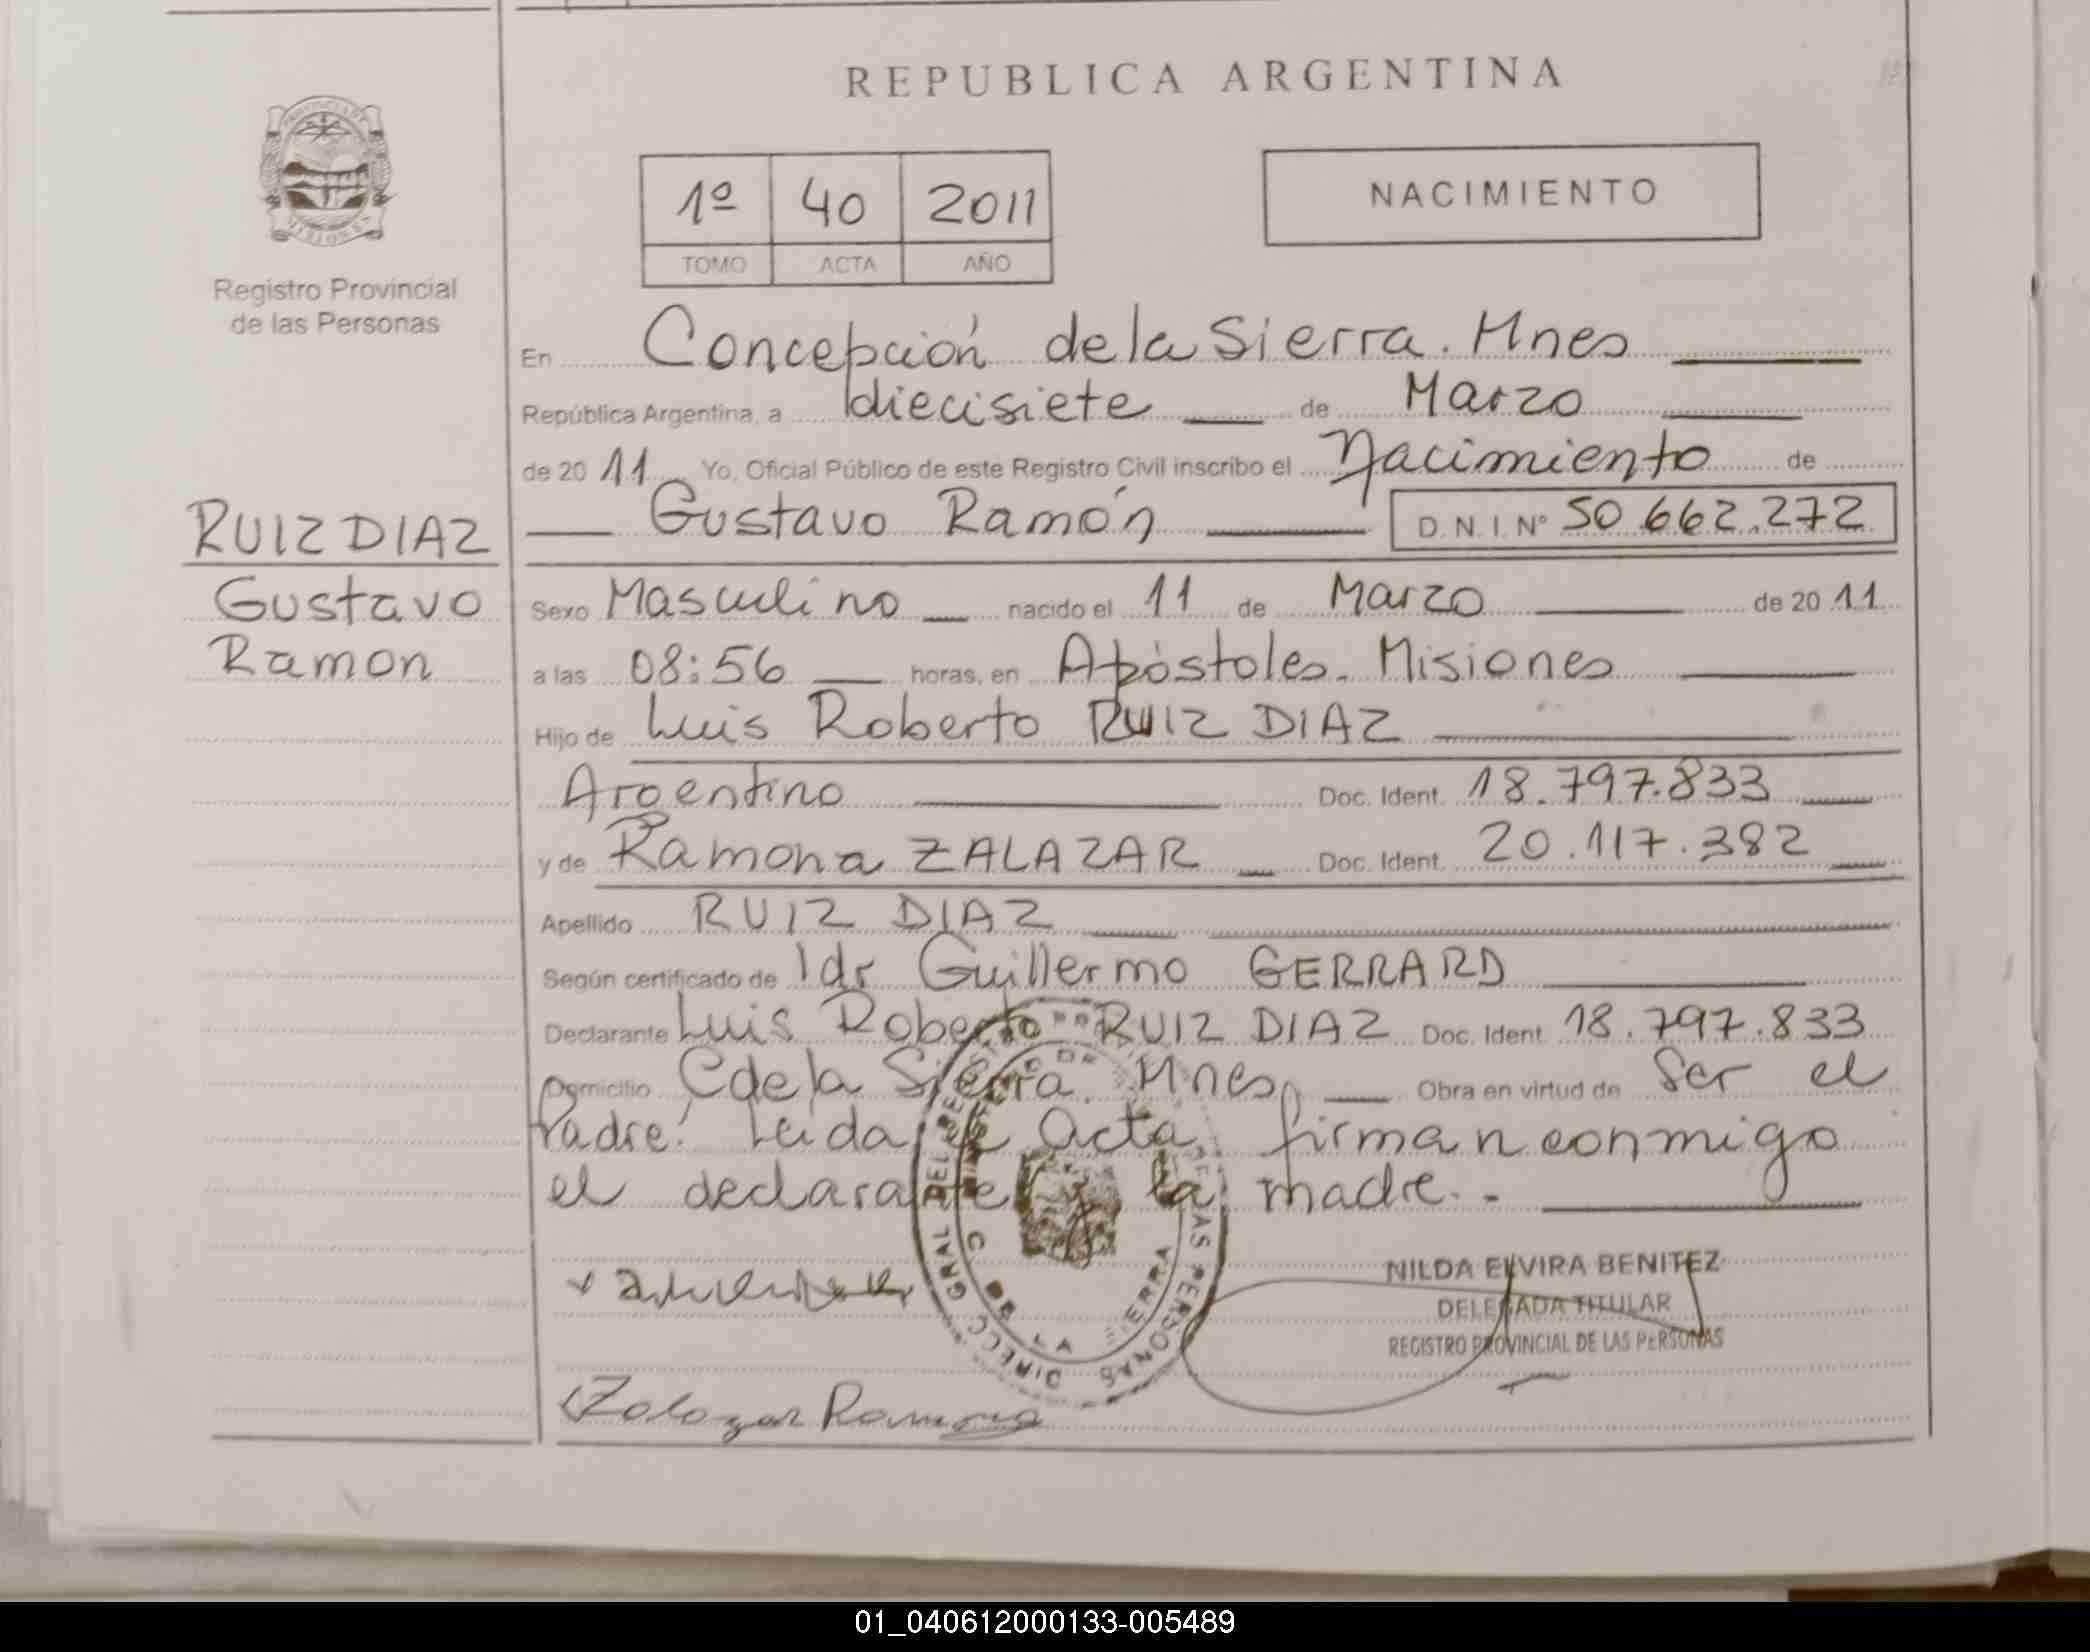 REPUBLICA ARGENTINA
NACIMIENTO
1º 40 2011
TOMO ACTA AÑO
Registro Provincial
de las Personas
En Concepción de la Sierra. Mnes
República Argentina, a diecisiete de Marzo
de 2011 Yo, Oficial Público de este Registro Civil inscribo el Nacimiento de
Gustavo Ramón D.N.I. Nº 50.662.272
RUIZ DIAZ
Gustavo
Ramon
Sexo Masculino nacido el 11 de Marzo de 2011
a las 08:56 horas, en Apóstoles. Misiones
Hijo de Luis Roberto RUIZ DIAZ
Argentino Doc. Ident. 18.797.833
y de Ramona ZALAZAR Doc. Ident. 20.117.382
Apellido RUIZ DIAZ
Según certificado de Guillermo GERRARD
Declarante Luis Roberto RUIZ DIAZ Doc. Ident. 18.797.833
Domicilio C de la Sierra. Mnes Obra en virtud de Ser el
Padre. Leida el Acta, firman conmigo
el declarante y la madre.-
NILDA ELVIRA BENITEZ
DELEGADA TITULAR
REGISTRO PROVINCIAL DE LAS PERSONAS
Zalazar Ramona
01_040612000133-005489